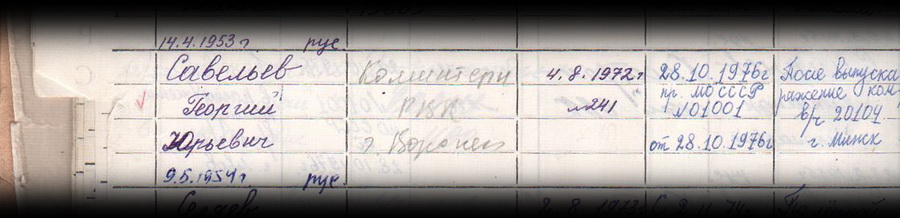 14.4.1953 г рус.
Савельев
Георгий
Юрьевич
9.5.1954 г. рус.
Коминтерн
РВК
г. Воронеж
4. 8. 1972 г
№ 241
28.10.1976 г
пр. МО СССР
№ 01001
от 28.10.1976 г
После выпуска
ражение ком.
в/ч 20104
г. Минск